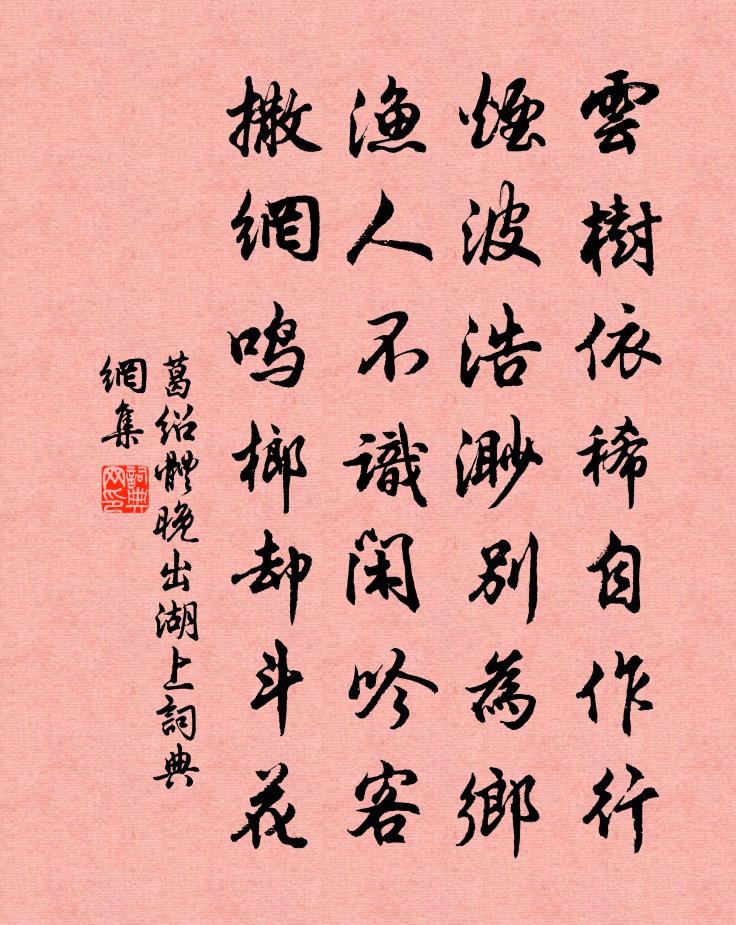 雲樹依稀自作行
煙波浩渺別為鄉
漁人不識閑吟客
撒網鸣榔却斗花
葛绍體晚出湖上詞典
網集
詞典網印